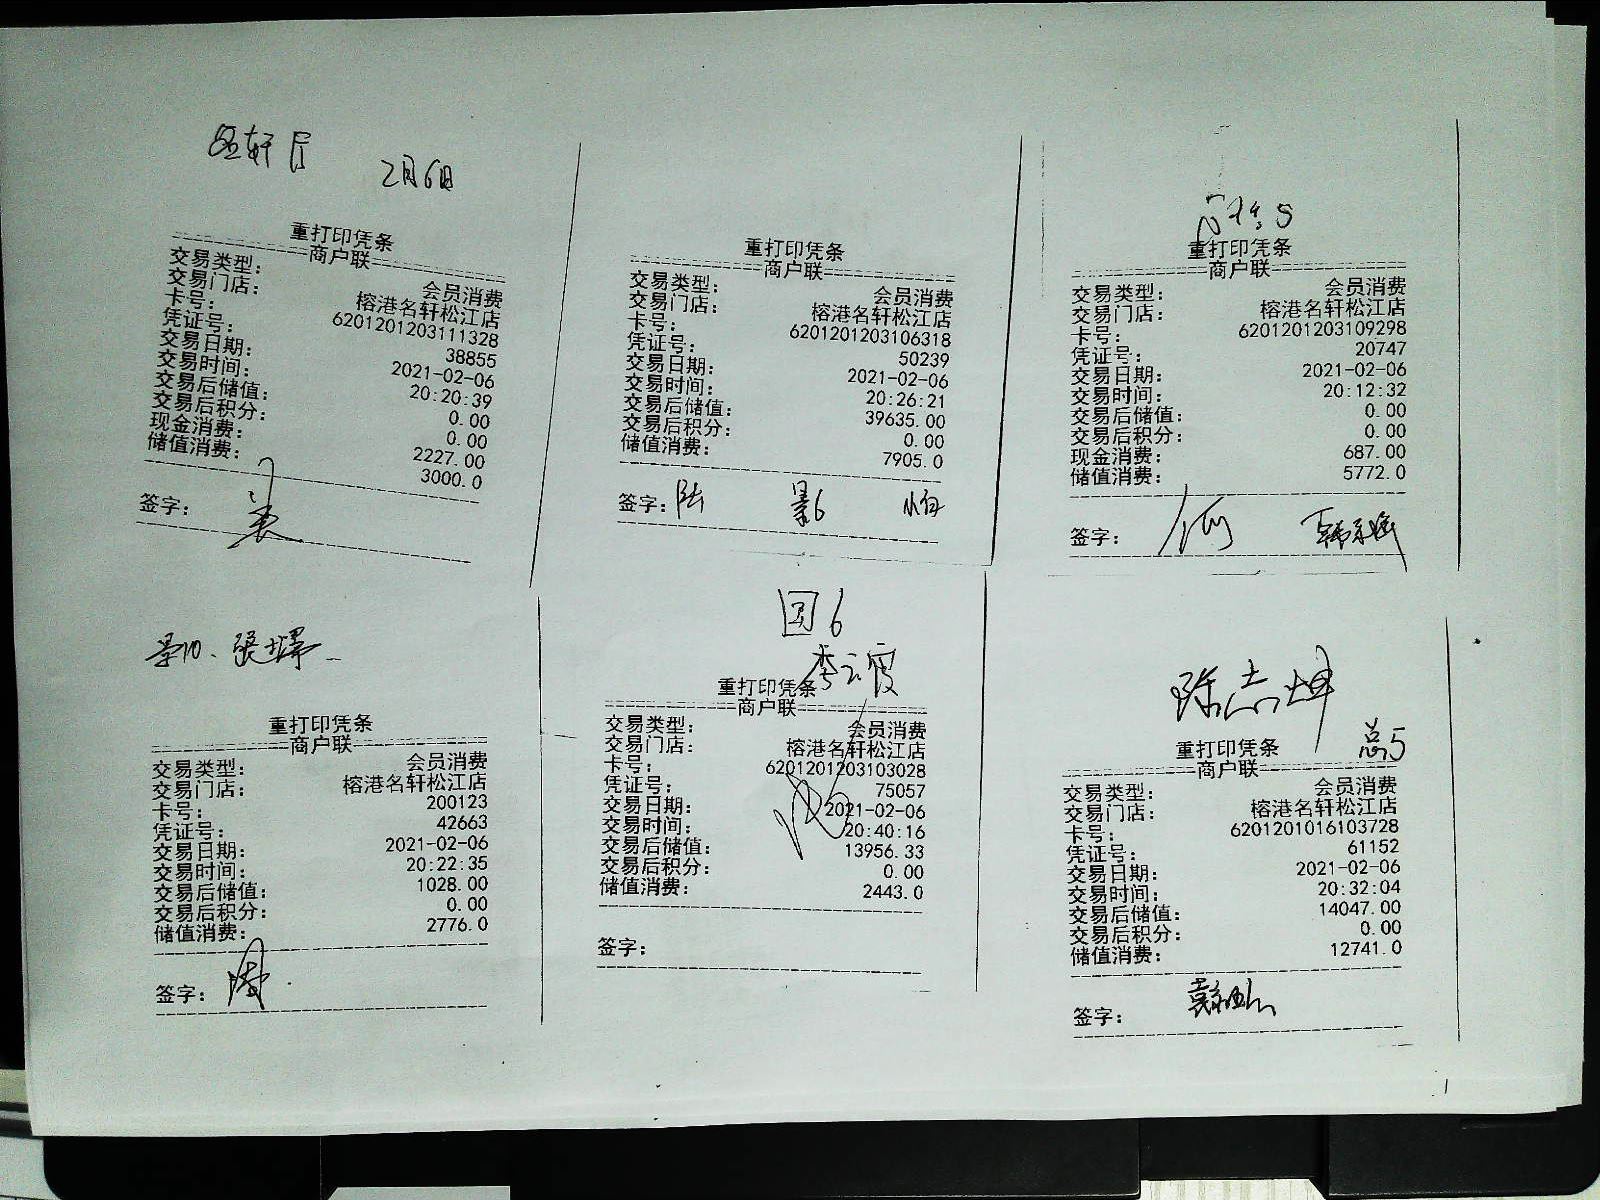 轩厅
2月6日
重打印凭条
商户联
交易类型: 会员消费
交易门店: 榕港名轩松江店
卡号: 6201201203111328
凭证号: 38855
交易日期: 2021-02-06
交易时间: 20:20:39
交易后储值: 0.00
交易后积分: 0.00
现金消费: 2227.00
储值消费: 3000.0
签字:
重打印凭条
商户联
交易类型: 会员消费
交易门店: 榕港名轩松江店
卡号: 6201201203106318
凭证号: 50239
交易日期: 2021-02-06
交易时间: 20:26:21
交易后储值: 39635.00
交易后积分: 0.00
储值消费: 7905.0
签字: 陆 景6
重打印凭条
商户联
交易类型: 会员消费
交易门店: 榕港名轩松江店
卡号: 6201201203109298
凭证号: 20747
交易日期: 2021-02-06
交易时间: 20:12:32
交易后储值: 0.00
交易后积分: 0.00
现金消费: 687.00
储值消费: 5772.0
签字: 何
重打印凭条
商户联
交易类型: 会员消费
交易门店: 榕港名轩松江店
卡号: 200123
凭证号: 42663
交易日期: 2021-02-06
交易时间: 20:22:35
交易后储值: 1028.00
交易后积分: 0.00
储值消费: 2776.0
签字:
圆6
李云霞
重打印凭条
商户联
交易类型: 会员消费
交易门店: 榕港名轩松江店
卡号: 6201201203103028
凭证号: 75057
交易日期: 2021-02-06
交易时间: 20:40:16
交易后储值: 13956.33
交易后积分: 0.00
储值消费: 2443.0
签字:
陈志坤
总5
重打印凭条
商户联
交易类型: 会员消费
交易门店: 榕港名轩松江店
卡号: 6201201016103728
凭证号: 61152
交易日期: 2021-02-06
交易时间: 20:32:04
交易后储值: 14047.00
交易后积分: 0.00
储值消费: 12741.0
签字: